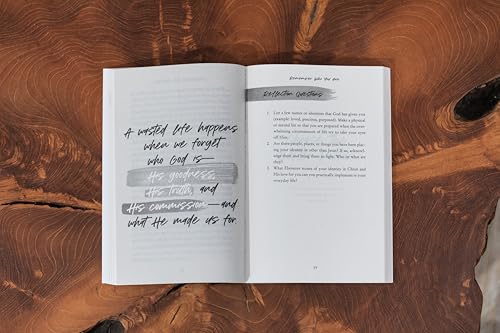 A wasted life happens
when we forget
who God is—
His goodness,
His truth, and
His commission—and
what He made us for.
Remember Who You Are
Reflection Questions
1. List a few names or identities that God has given you
(example: loved, precious, purposed). Make a physical
or mental list so that you are prepared when the over-
whelming circumstances of life try to take your eyes
off Him.
2. Are there people, places, or things you have been plac-
ing your identity in other than Jesus? If so, acknowl-
edge them and bring them to light. Who or what are
they?
3. What Ebenezer stones of your identity in Christ and
His love for you can you practically implement in your
everyday life?